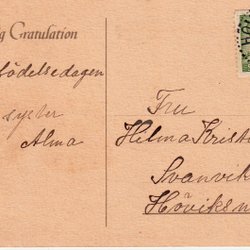 g Gratulation
födelsedagen
syster
Alma
Fru
Helma Krist
Svanvik
Höviksn